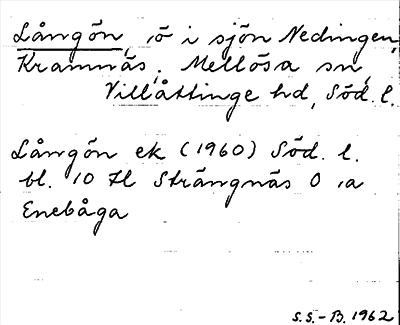 Långön, ö i sjön Nedingen,
Kramnäs, Mellösa sn,
Villåttinge hd, Söd. l.
Långön ek (1960) Söd. l.
bl. 10 H Strängnäs O 1a
Enebåga
S.S.-B. 1962